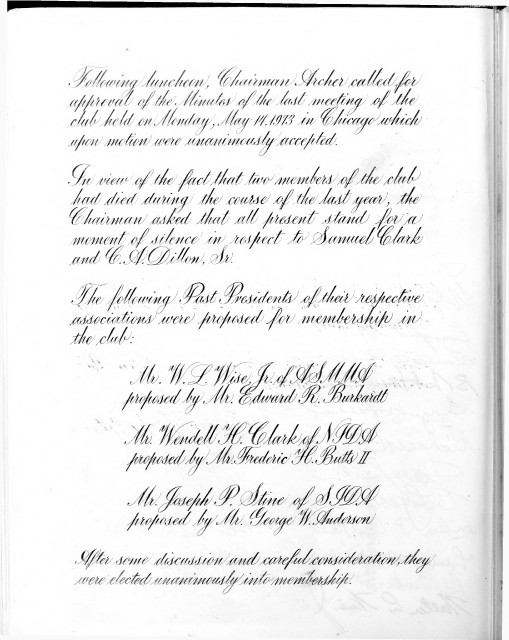 Following luncheon, Chairman Archer called for
approval of the Minutes of the last meeting of the
club held on Monday, May 14, 1973 in Chicago which
upon motion were unanimously accepted.
In view of the fact, that two members of the club
had died during the course of the last year, the
Chairman asked that all present stand for a
moment of silence in respect to Samuel Clark
and C. A. Dillon, Sr.
The following Past Presidents of their respective
associations were proposed for membership in
the club:
Mr. W. L. Wise, Jr. of ASMMA
proposed by Mr. Edward R. Burkardt
Mr. Wendell H. Clark of NIDA
proposed by Mr. Frederic H. Butts II
Mr. Joseph P. Stine of SIDA
proposed by Mr. George W. Anderson
After some discussion and careful consideration, they
were elected unanimously into membership.